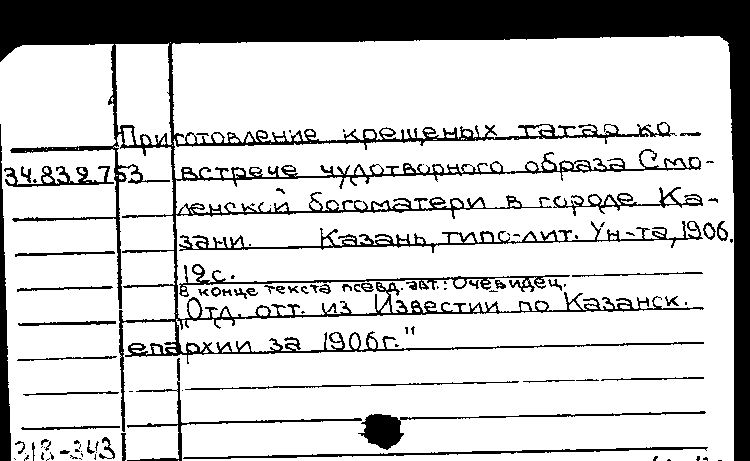 Приготовление крещеных татар ко
34.832.753 встрече чудотворного образа Смо-
ленской богоматери в городе Ка-
зани. Казань, типо-лит. Ун-та, 1906.
12с.
В конце текста псевд. авт.: Очевидец.
"Отд. отт. из Известий по Казанск.
епархии за 1906г."
318-343